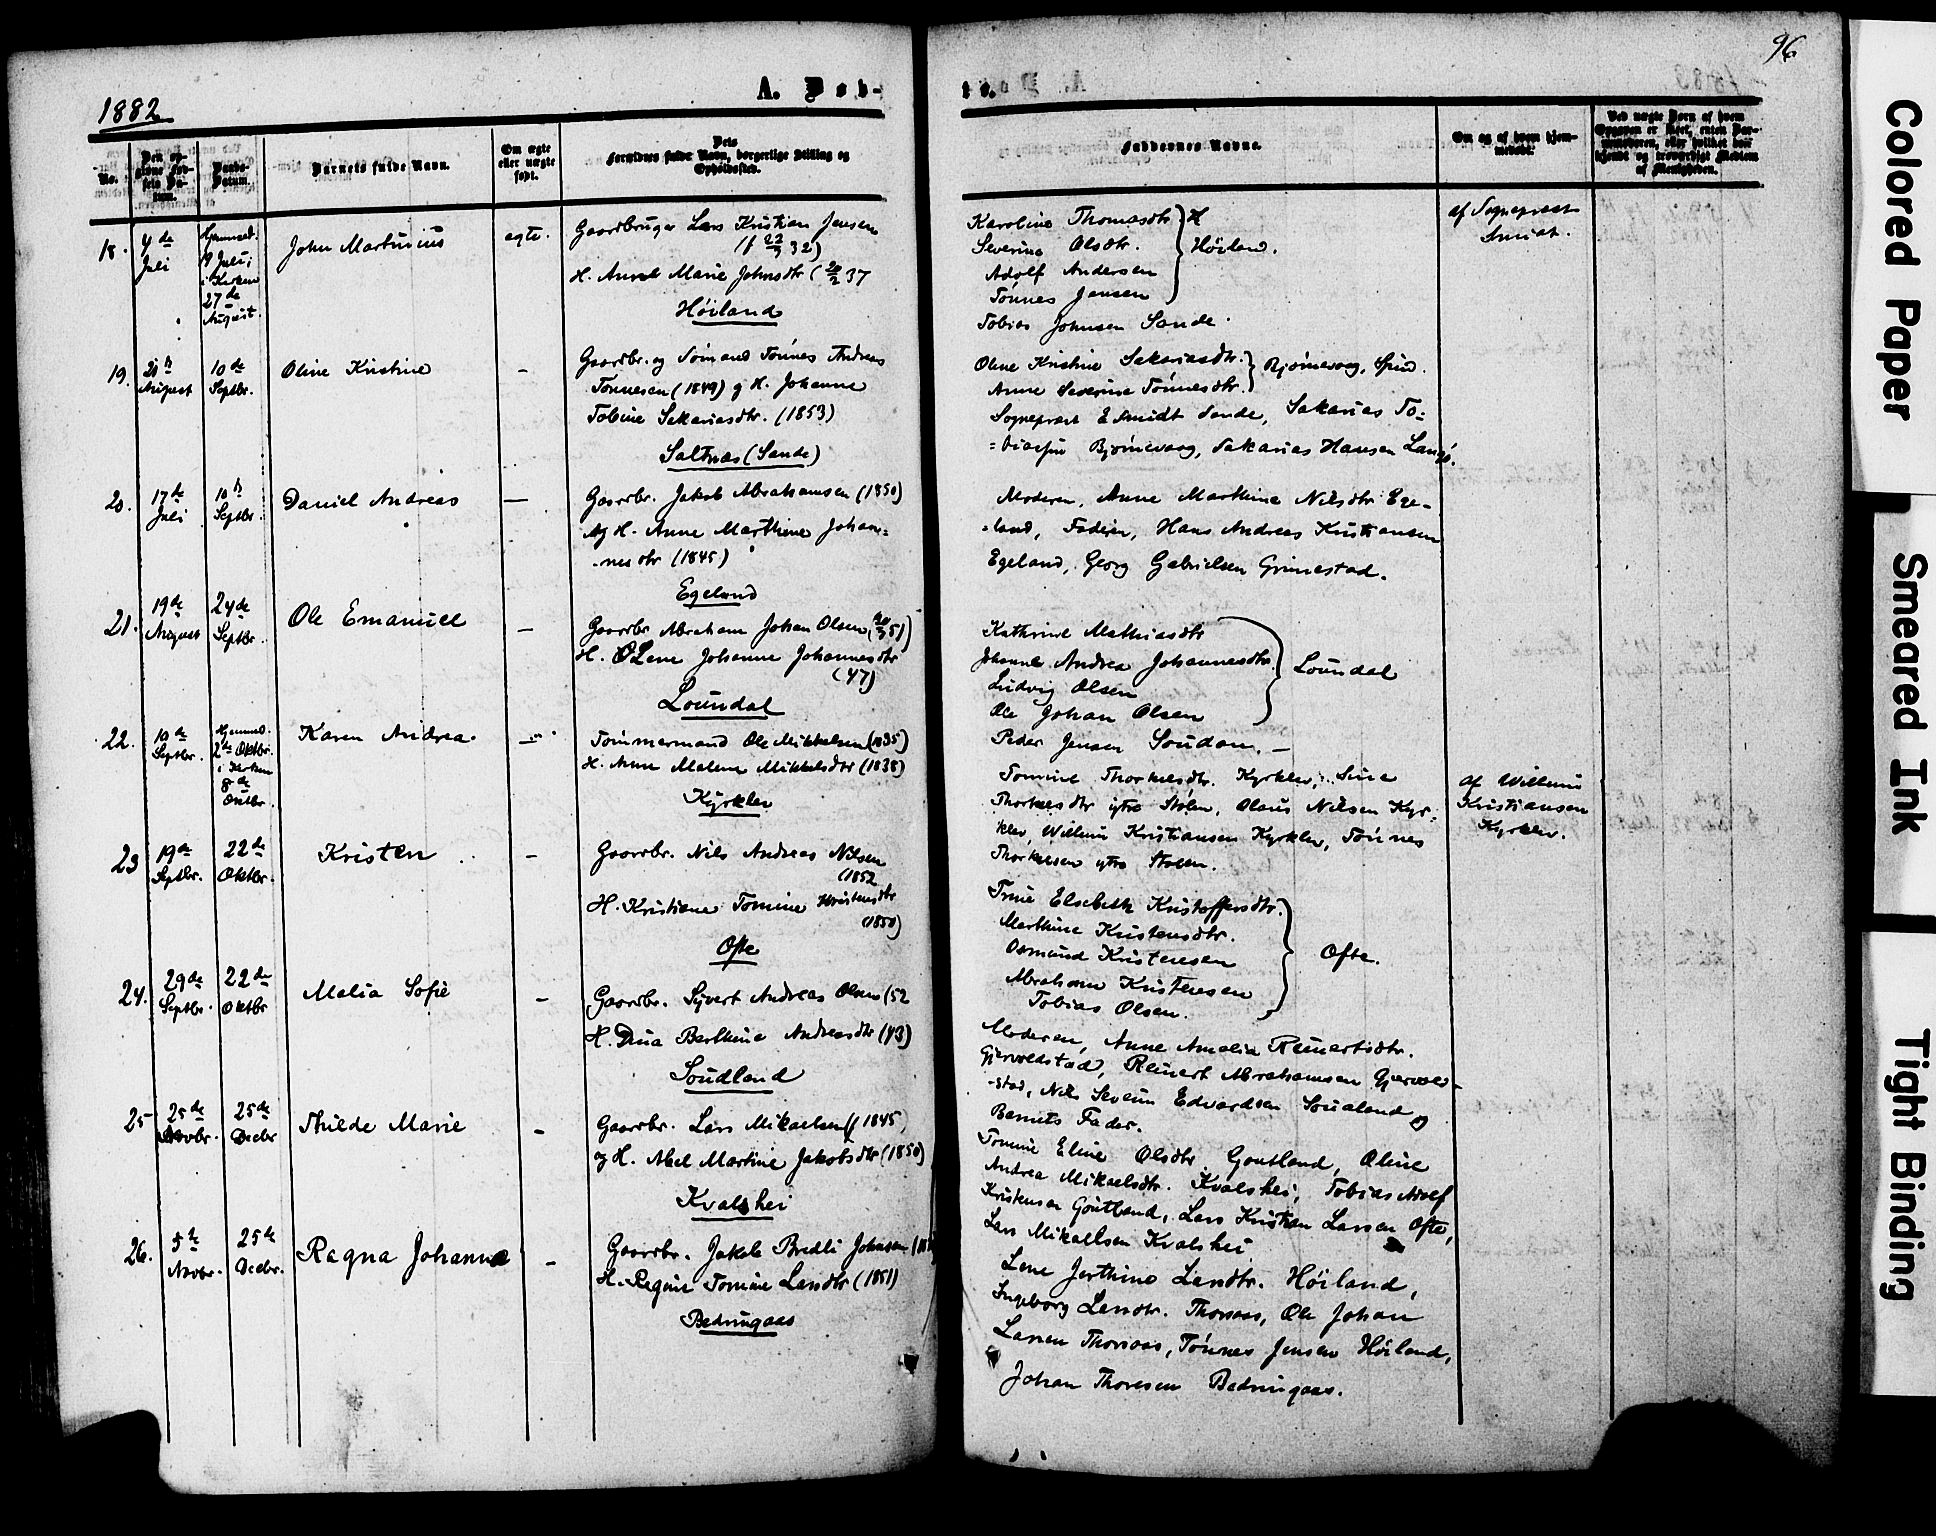 96
1882
A. Døb-
te.
No.
Den opgivne Fødsels Datum.
Daabs-Datum.
Barnets fulde Navn.
Om ægte eller uægte født.
Dets Forældres fulde Navn, borgerlige Stilling og Opholdssted.
Faddernes Navne.
Om og af hvem hjemmedøbt.
18.
4de Juli
Hjemmed. 19 Juli; i Kirken 27de August.
John Martinius
ægte.
Gaardbruger Lars Kristian Jensen
(f 22/7 32)
H. Anne Marie Johnsdtr (20/2 37
Høiland
Karoline Thomasdtr
Severine Olsdtr.
Adolf Andersen
Tønnes Jensen
Høiland.
Tobias Johnsen Sande.
af Sogneprest
Smidt.
19.
August
10de Septbr.
Oline Kristine
-
Gaardbr. og Sømand Tønnes Andreas
Tønnesen (1849) og H. Johanne
Tobine Sakariasdtr. (1853)
Saltnæs (Sande)
Oline Kristine Sakariasdtr.
Anne Severine Tønnesdtr.
Bjørnevaag, Spind.
Sogneprest E Smidt Sande, Sakarias To-
-biassen Bjørnevaag, Sakarias Hansen Langø.
20.
17de Juli
10de Septbr.
Daniel Andreas
—
Gaardbr. Jakob Abrahamsen (1850)
og H. Anne Marthine Johan-
-nesdtr (1845)
Egeland
Moderen, Anne Marthine Nilsdtr Ege-
-land, Faderen, Hans Andreas Kristiansen
Egeland, Georg Gabrielsen Grimestad.
21.
19de August
24de Septbr.
Ole Emanuel
-
Gaardbr Abraham Johan Olsen (20/3 51)
H. OLene Johanne Johannesdtr
(47)
Loundal
Kathrine Mathiasdtr
Johanne Andrea Johannesdtr.
Ludvig Olsen
Ole Johan Olsen
Loundal
Peder Jensen Soudan. —
22.
10de Septbr.
Hjemmed. 2de Oktbr. i Kirken 8de Oktbr.
Karen Andrea.
—
Tømmermand Ole Mikkelsen (1835)
H. Anne Malene Mikkelsdtr (1838)
Kyrklev
Tomine Thorkelsdtr. Kyrklev, Sine
Thorkelsdtr ytre Stølen, Olaus Nilsen Kyr-
klev, Willum Kristiansen Kyrklev, Tønnes
Thorkelsen ytre Stølen.
af Willum
Kristiansen
Kyrklev.
23
19de Septbr.
22de Oktbr.
Kristen
-
Gaardbr. Nils Andreas Nilsen
(1852
H. Kristiane Tomine Kristensdtr
(1850)
Ofte
Trine Elsebeth Kristoffersdtr.
Marthine Kristensdtr.
Osmund Kristensen
Abraham Kristensen
Tobias Olsen.
Ofte.
24.
29de Septbr.
22de Oktbr
Malia Sofie
-
Gaardbr. Syvert Andreas Olsen (52
H. Dina Berthine Andreasdtr (43)
Soudland
Moderen, Anne Amalia Reinertsdtr.
Gjervoldstad, Reinert Abrahamsen Gjervold-
-stad, Nils Severin Edvardsen Soudland og
Barnets Fader.
25
25de Novbr.
25de Decbr
Thilde Marie
-
Gaardbr. Lars Mikaelsen (f 1845,
og H. Abel Martine Jakobsdtr (1850)
Kvalshei
Tomine Eline Olsdtr Goutland, Oline
Andrea Mikaelsdtr. Kvalshei, Tobias Adolf
Kristensen Goutland, Lars Kristian Larsen Ofte,
Lars Mikaelsen Kvalshei
26.
5te Novbr.
25de Decbr.
Ragna Johanne
-
Gaardbr. Jakob Bredli Johnsen
H. Regine Tomine Larsdtr (1851)
Bedringaas
Lene Jerthine Larsdtr. Høiland,
Ingeborg Larsdtr. Thorsaas, Ole Johan
Larsen Thorsaas, Tønnes Jensen Høiland,
Johan Thoresen Bedringaas.
Colored Paper
Smeared Ink
Tight Binding